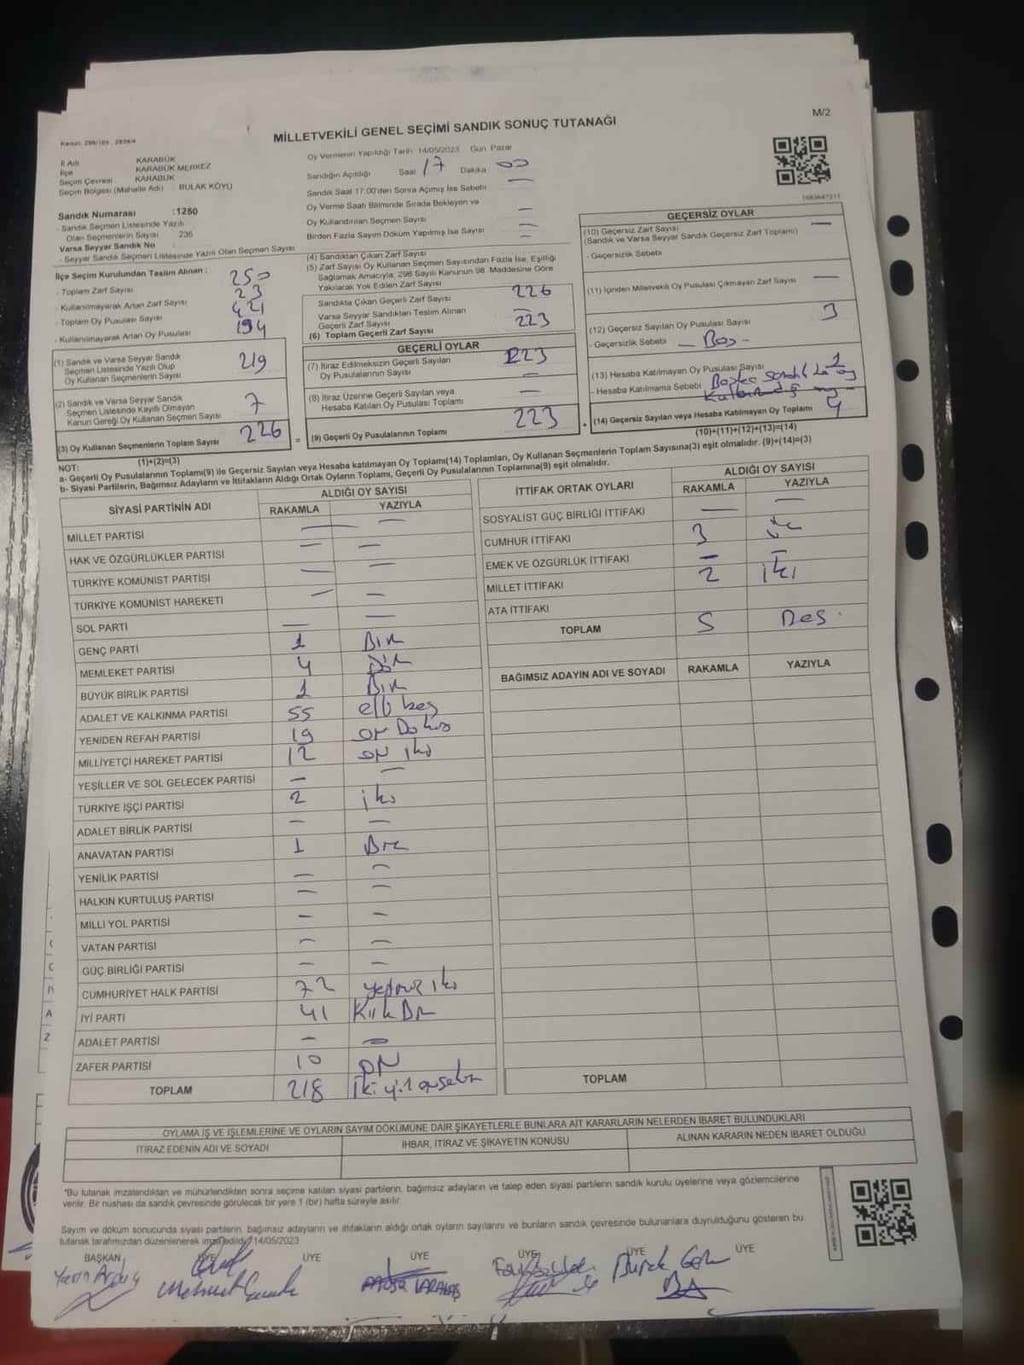 M/2
MİLLETVEKİLİ GENEL SEÇİMİ SANDIK SONUÇ TUTANAĞI
İl Adı KARABÜK
İlçe KARABÜK MERKEZ
Seçim Çevresi KARABÜK
Seçim Bölgesi (Mahalle Adı) BULAK KÖYÜ
Oy Vermenin Yapıldığı Tarih 14/05/2023 Gün Pazar
Sandığın Açıldığı Saat 17 Dakika 00
Sandık Saat 17:00'den Sonra Açılmış İse Sebebi —
Oy Verme Saati Bitiminde Sırada Bekleyen ve
Oy Kullandırılan Seçmen Sayısı —
Birden Fazla Sayım Döküm Yapılmış İse Sayısı —
Sandık Numarası :1250
- Sandık Seçmen Listesinde Yazılı
Olan Seçmenlerin Sayısı 236
Varsa Seyyar Sandık No
- Seyyar Sandık Seçmen Listesinde Yazılı Olan Seçmen Sayısı
İlçe Seçim Kurulundan Teslim Alınan :
- Toplam Zarf Sayısı 250
- Kullanılmayarak Artan Zarf Sayısı 23
- Toplam Oy Pusulası Sayısı 421
- Kullanılmayarak Artan Oy Pusulası 194
(1) Sandık ve Varsa Seyyar Sandık
Seçmen Listesinde Yazılı Olup
Oy Kullanan Seçmenlerin Sayısı 219
(2) Sandık ve Varsa Seyyar Sandık
Seçmen Listesinde Kayıtlı Olmayan
Kanun Gereği Oy Kullanan Seçmen Sayısı 7
(3) Oy Kullanan Seçmenlerin Toplam Sayısı 226
(1)+(2)=(3)
(4) Sandıktan Çıkan Zarf Sayısı —
(5) Zarf Sayısı Oy Kullanan Seçmen Sayısından Fazla İse, Eşitliği
Sağlamak Amacıyla, 298 Sayılı Kanunun 98. Maddesine Göre
Yakılarak Yok Edilen Zarf Sayısı
Sandıkta Çıkan Geçerli Zarf Sayısı 226
Varsa Seyyar Sandıktan Teslim Alınan
Geçerli Zarf Sayısı —
(6) Toplam Geçerli Zarf Sayısı 223
GEÇERLİ OYLAR
(7) İtiraz Edilmeksizin Geçerli Sayılan
Oy Pusulalarının Sayısı 223
(8) İtiraz Üzerine Geçerli Sayılan veya
Hesaba Katılan Oy Pusulası Toplamı —
= (9) Geçerli Oy Pusulalarının Toplamı 223
GEÇERSİZ OYLAR
(10) Geçersiz Zarf Sayısı —
(Sandık ve Varsa Seyyar Sandık Geçersiz Zarf Toplamı)
- Geçersizlik Sebebi
(11) İçinden Milletvekili Oy Pusulası Çıkmayan Zarf Sayısı —
(12) Geçersiz Sayılan Oy Pusulası Sayısı 3
- Geçersizlik Sebebi — Boş -
(13) Hesaba Katılmayan Oy Pusulası Sayısı 1
- Hesaba Katılmama Sebebi Başka sandık
+ (14) Geçersiz Sayılan veya Hesaba Katılmayan Oy Toplamı 4
(10)+(11)+(12)+(13)=(14)
NOT:
a- Geçerli Oy Pusulalarının Toplamı(9) ile Geçersiz Sayılan veya Hesaba katılmayan Oy Toplamı(14) Toplamları, Oy Kullanan Seçmenlerin Toplam Sayısına(3) eşit olmalıdır. (9)+(14)=(3)
b- Siyasi Partilerin, Bağımsız Adayların ve İttifakların Aldığı Ortak Oyların Toplamı, Geçerli Oy Pusulalarının Toplamına(9) eşit olmalıdır.
SİYASİ PARTİNİN ADI ALDIĞI OY SAYISI
RAKAMLA YAZIYLA
MİLLET PARTİSİ — —
HAK VE ÖZGÜRLÜKLER PARTİSİ — —
TÜRKİYE KOMÜNİST PARTİSİ — —
TÜRKİYE KOMÜNİST HAREKETİ — —
SOL PARTİ — —
GENÇ PARTİ 1 Bir
MEMLEKET PARTİSİ 4 Dört
BÜYÜK BİRLİK PARTİSİ 1 Bir
ADALET VE KALKINMA PARTİSİ 55 elli beş
YENİDEN REFAH PARTİSİ 19 on Dokuz
MİLLİYETÇİ HAREKET PARTİSİ 12 on iki
YEŞİLLER VE SOL GELECEK PARTİSİ — —
TÜRKİYE İŞÇİ PARTİSİ 2 iki
ADALET BİRLİK PARTİSİ — —
ANAVATAN PARTİSİ 1 Bir
YENİLİK PARTİSİ — —
HALKIN KURTULUŞ PARTİSİ — —
MİLLİ YOL PARTİSİ — —
VATAN PARTİSİ — —
GÜÇ BİRLİĞİ PARTİSİ — —
CUMHURİYET HALK PARTİSİ 72 yetmiş iki
İYİ PARTİ 41 Kırk Bir
ADALET PARTİSİ — —
ZAFER PARTİSİ 10 ON
TOPLAM 218 iki yüz onsekiz
İTTİFAK ORTAK OYLARI ALDIĞI OY SAYISI
RAKAMLA YAZIYLA
SOSYALİST GÜÇ BİRLİĞİ İTTİFAKI — —
CUMHUR İTTİFAKI 3 üç
EMEK VE ÖZGÜRLÜK İTTİFAKI — —
MİLLET İTTİFAKI 2 iki
ATA İTTİFAKI
TOPLAM 5 Beş
BAĞIMSIZ ADAYIN ADI VE SOYADI RAKAMLA YAZIYLA
TOPLAM
OYLAMA İŞ VE İŞLEMLERİNE VE OYLARIN SAYIM DÖKÜMÜNE DAİR ŞİKAYETLERLE BUNLARA AİT KARARLARIN NELERDEN İBARET BULUNDUKLARI
İTİRAZ EDENİN ADI VE SOYADI İHBAR, İTİRAZ VE ŞİKAYETİN KONUSU ALINAN KARARIN NEDEN İBARET OLDUĞU
*Bu tutanak imzalandıktan ve mühürlendikten sonra seçime katılan siyasi partilerin, bağımsız adayların ve talep eden siyasi partilerin sandık kurulu üyelerine veya gözlemcilerine
verilir. Bir nüshası da sandık çevresinde görülecek bir yere 1 (bir) hafta süreyle asılır.
Sayım ve döküm sonucunda siyasi partilerin, bağımsız adayların ve ittifakların aldığı ortak oyların sayılarını ve bunların sandık çevresinde bulunanlara duyrulduğunu gösteren bu
tutanak tarafımızdan düzenlenerek imza edildi. 14/05/2023
BAŞKAN ÜYE ÜYE ÜYE ÜYE ÜYE ÜYE